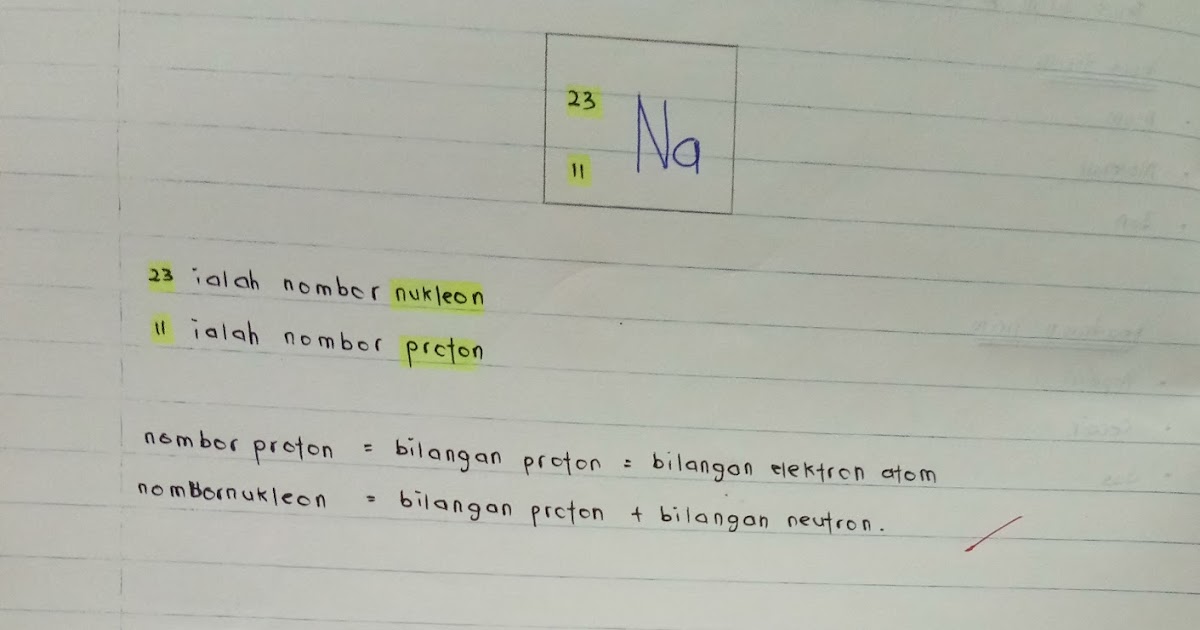 23
Na
11
23 ialah nombor nukleon
11 ialah nombor proton
nombor proton = bilangan proton = bilangan elektron atom
nombornukleon = bilangan proton + bilangan neutron.